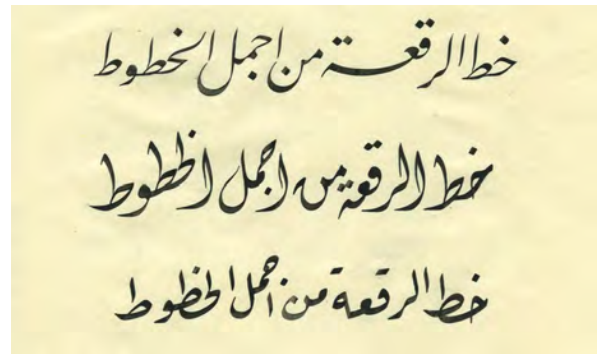 خط الرقعة من اجمل الخطوط
خط الرقعة من اجمل الخطوط
خط الرقعة من اجمل الخطوط